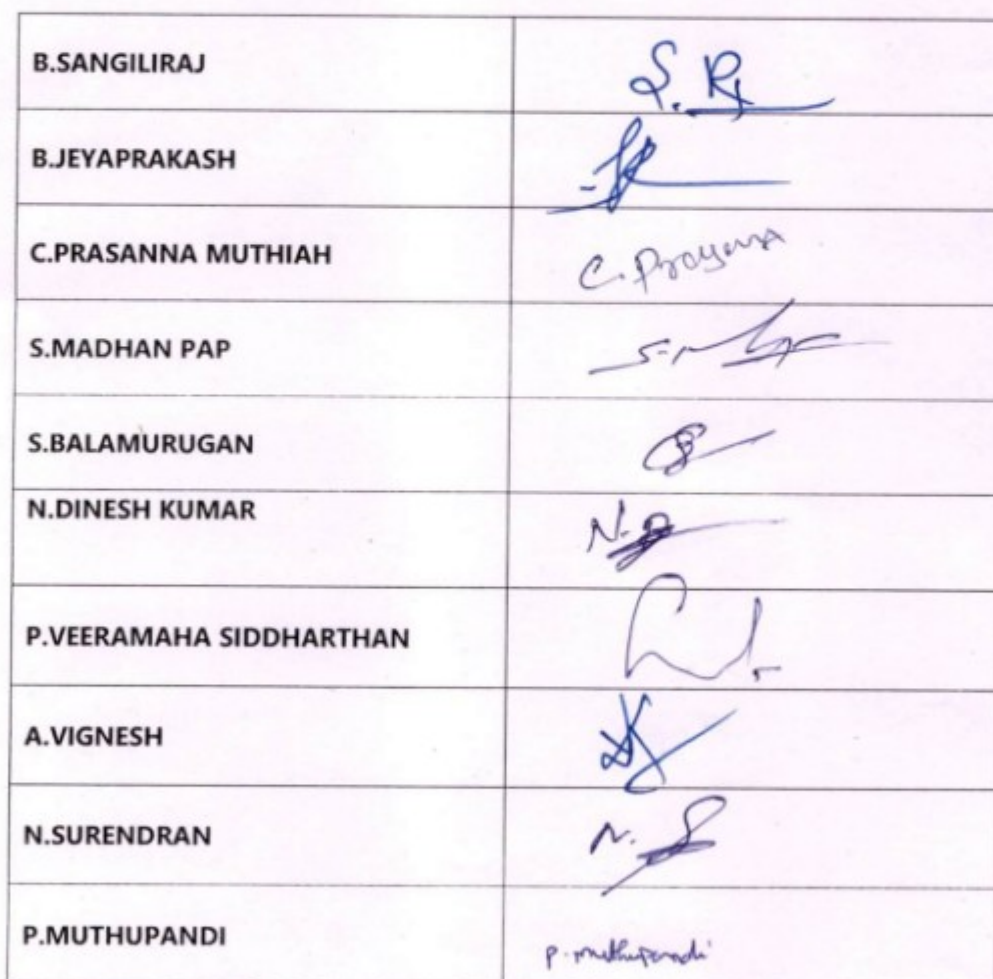 B.SANGILIRAJ S. R
B.JEYAPRAKASH
C.PRASANNA MUTHIAH C. Prasanna
S.MADHAN PAP
S.BALAMURUGAN
N.DINESH KUMAR N.
P.VEERAMAHA SIDDHARTHAN
A.VIGNESH
N.SURENDRAN N. S
P.MUTHUPANDI P. muthupandi